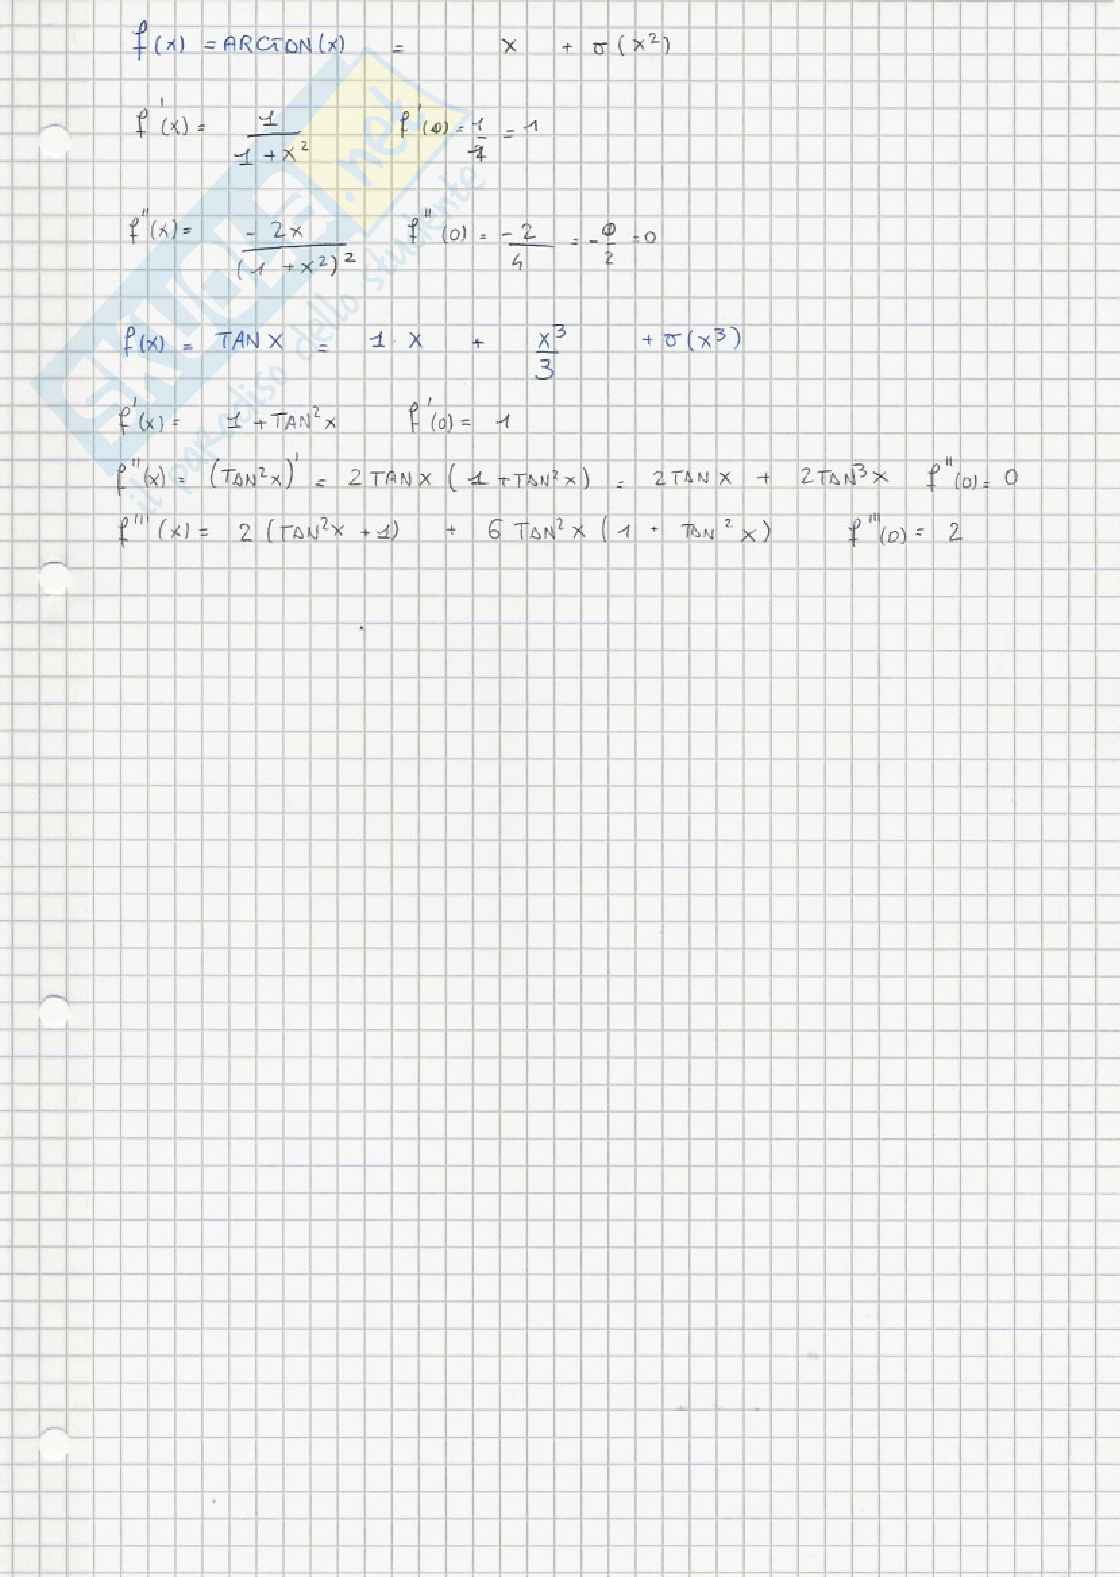 f(x) = ARCTAN(x) = x + σ(x²)
f'(x) = 1/(1+x²) f'(0) = 1/1 = 1
f''(x) = -2x/(1+x²)² f''(0) = -2/4 = -0/2 = 0
f(x) = TAN X = 1·X + X³/3 + σ(x³)
f'(x) = 1 + TAN²x f'(0) = 1
f''(x) = (TAN²x)' = 2 TAN X (1 + TAN²x) = 2 TAN X + 2 TAN³X f''(0) = 0
f'''(x) = 2 (TAN²X + 1) + 6 TAN²X (1 + TAN²X) f'''(0) = 2
SKUOLA.net
il paradiso dello studente